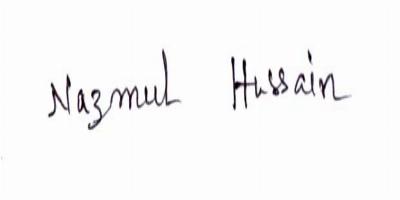 Nazmul Hussain